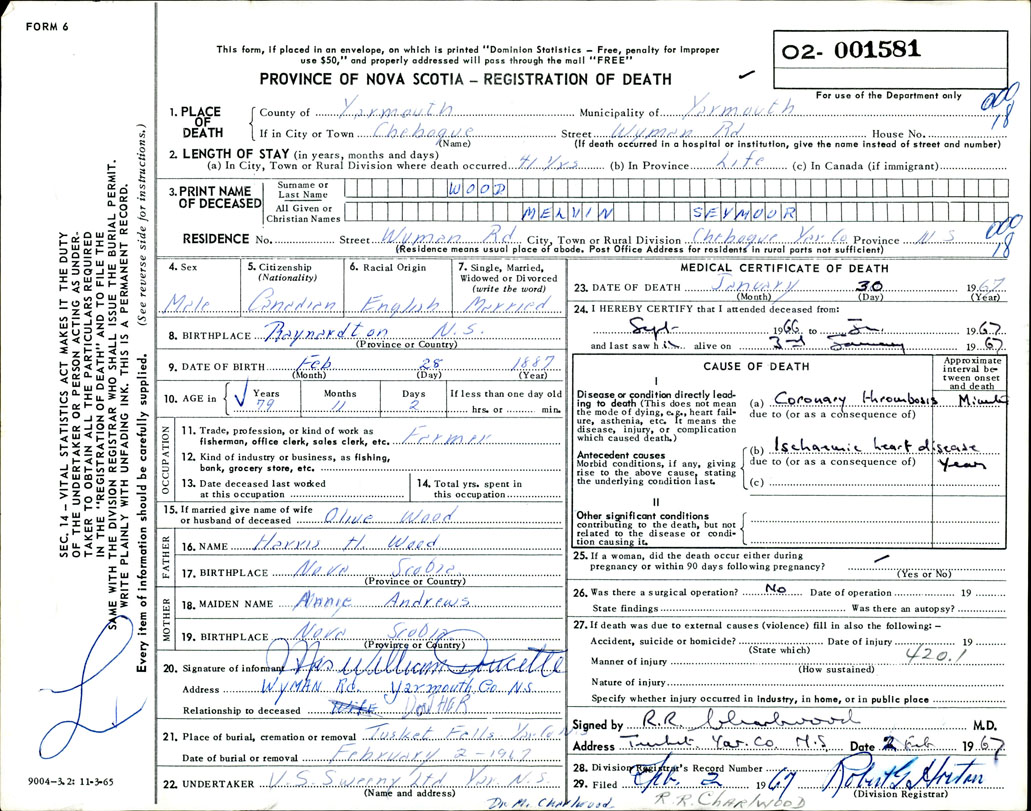 FORM 6
This form, if placed in an envelope, on which is printed "Dominion Statistics – Free, penalty for improper
use $50," and properly addressed will pass through the mail "FREE"
PROVINCE OF NOVA SCOTIA – REGISTRATION OF DEATH
O2- 001581
For use of the Department only
1. PLACE OF DEATH
County of Yarmouth Municipality of Yarmouth
If in City or Town Chebogue Street Wyman Rd House No.
(Name) (If death occurred in a hospital or institution, give the name instead of street and number)
000
18
2. LENGTH OF STAY (in years, months and days)
(a) In City, Town or Rural Division where death occurred 41 Yrs (b) In Province Life (c) In Canada (if immigrant)
3. PRINT NAME OF DECEASED
Surname or Last Name WOOD
All Given or Christian Names MELVIN SEYMOUR
RESIDENCE No. Street Wyman Rd City, Town or Rural Division Chebogue Yar. Co Province N S
(Residence means usual place of abode. Post Office Address for residents in rural parts not sufficient)
000
18
4. Sex
Male
5. Citizenship (Nationality)
Canadian
6. Racial Origin
English
7. Single, Married, Widowed or Divorced (write the word)
Married
8. BIRTHPLACE Raynardton N.S.
(Province or Country)
9. DATE OF BIRTH Feb 28 1887
(Month) (Day) (Year)
10. AGE in Years 79 Months 11 Days 2 If less than one day old hrs. or min.
OCCUPATION
11. Trade, profession, or kind of work as fisherman, office clerk, sales clerk, etc. Farmer
12. Kind of industry or business, as fishing, bank, grocery store, etc.
13. Date deceased last worked at this occupation
14. Total yrs. spent in this occupation
15. If married give name of wife or husband of deceased Olive Wood
FATHER
16. NAME Harris H. Wood
17. BIRTHPLACE Nova Scotia
(Province or Country)
MOTHER
18. MAIDEN NAME Annie Andrews
19. BIRTHPLACE Nova Scotia
(Province or Country)
20. Signature of informant Mrs William Doucette
Address Wyman Rd. Yarmouth Co N.S
Relationship to deceased
21. Place of burial, cremation or removal Tusket Falls Yar. Co N.S
Date of burial or removal February 2-1967
22. UNDERTAKER V.S. Sweeny Ltd Yar. N.S.
(Name and address)
MEDICAL CERTIFICATE OF DEATH
23. DATE OF DEATH January 30 1967
(Month) (Day) (Year)
24. I HEREBY CERTIFY that I attended deceased from:
Sept 1966 to Jan. 1967
and last saw him alive on 3rd January 1967
CAUSE OF DEATH
Approximate interval between onset and death
I
Disease or condition directly leading to death (This does not mean the mode of dying, e.g., heart failure, asthenia, etc. It means the disease, injury, or complication which caused death.)
(a) Coronary thrombosis
due to (or as a consequence of)
Antecedent causes
Morbid conditions, if any, giving rise to the above cause, stating the underlying condition last.
(b) Ischaemic heart disease
due to (or as a consequence of) Years
(c)
II
Other significant conditions
contributing to the death, but not related to the disease or condition causing it.
25. If a woman, did the death occur either during
pregnancy or within 90 days following pregnancy?
(Yes or No)
26. Was there a surgical operation? No Date of operation 19
State findings Was there an autopsy?
27. If death was due to external causes (violence) fill in also the following: –
Accident, suicide or homicide? Date of injury 19
(State which) 420.1
Manner of injury
(How sustained)
Nature of injury
Specify whether injury occurred in industry, in home, or in public place
Signed by R.R. Charlwood M.D.
Address Tusket Yar. Co N.S Date 2 Feb 1967
28. Division Registrar's Record Number
29. Filed Feb. 2 1967 Robert G. Horton
(Division Registrar)
Dr. M. Charlwood.
R.R. CHARLWOOD
SEC. 14 – VITAL STATISTICS ACT MAKES IT THE DUTY
OF THE UNDERTAKER OR PERSON ACTING AS UNDER-
TAKER TO OBTAIN ALL THE PARTICULARS REQUIRED
IN THE "REGISTRATION OF DEATH" AND TO FILE THE
SAME WITH THE DIVISION REGISTRAR WHO SHALL ISSUE THE BURIAL PERMIT.
WRITE PLAINLY WITH UNFADING INK. THIS IS A PERMANENT RECORD.
Every item of information should be carefully supplied. (See reverse side for instructions.)
9004-3.2: 11-3-65